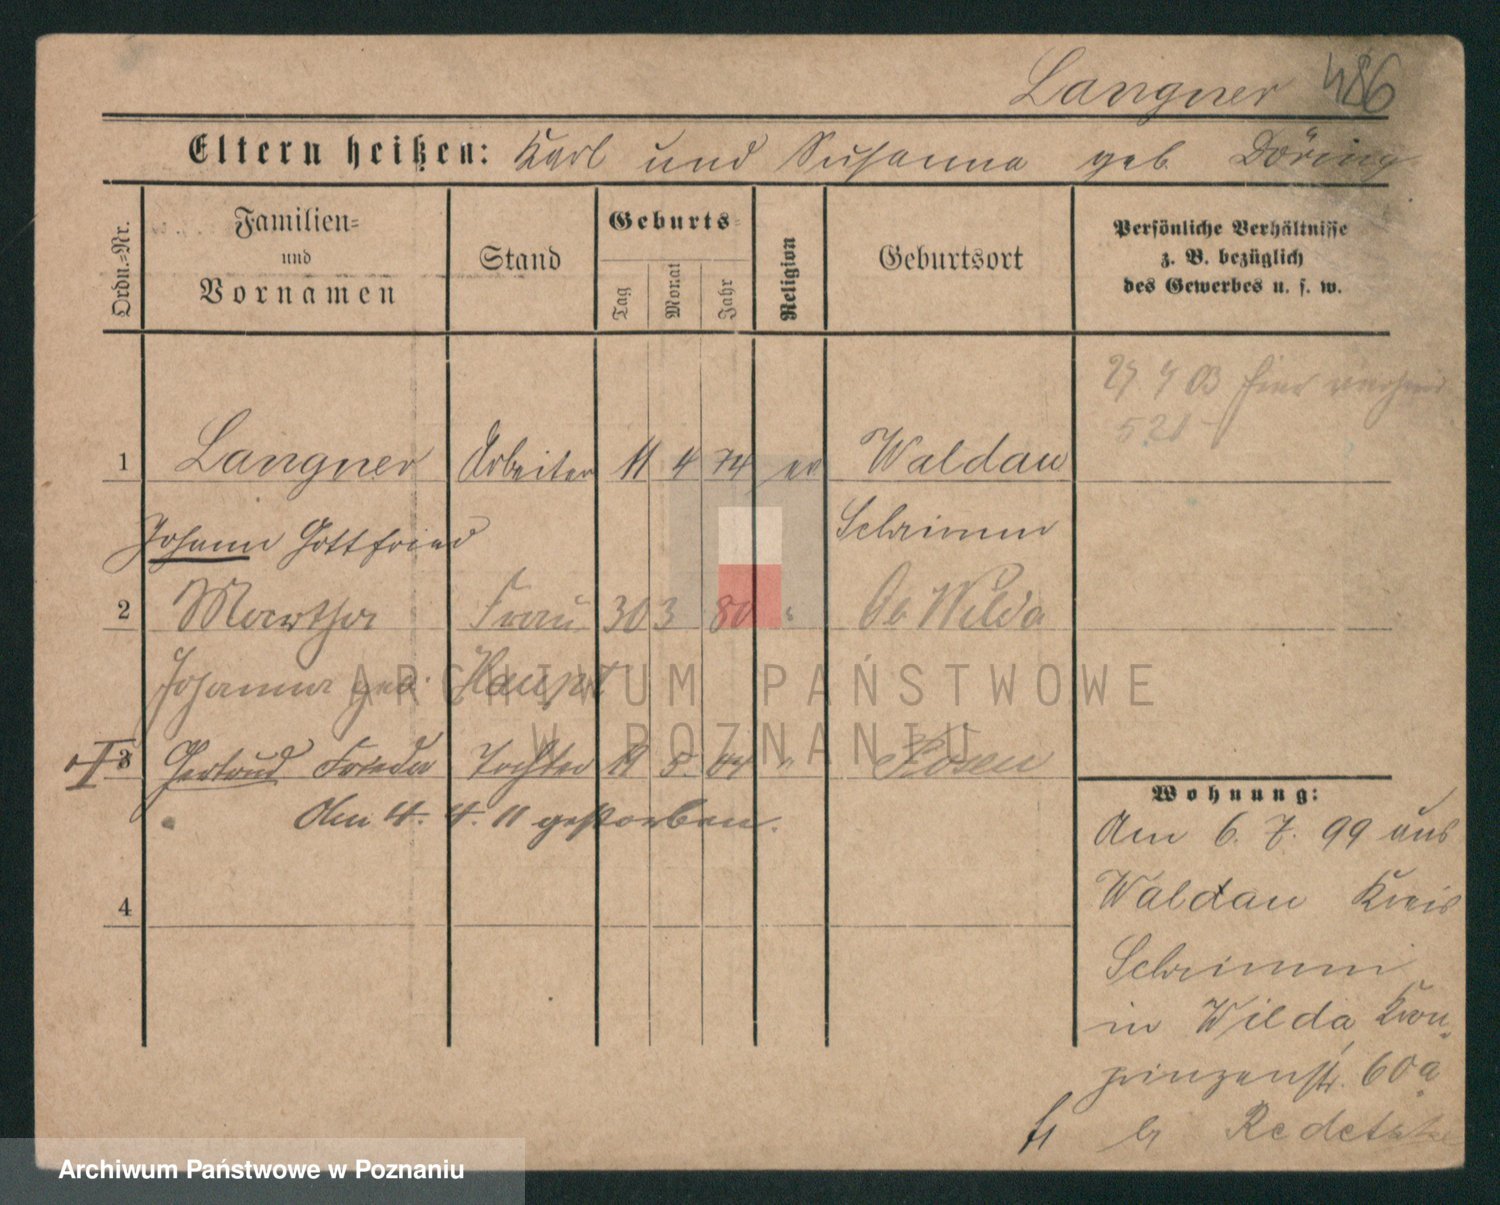 Langner 486
Eltern heißen: Karl und Susanna geb Döring
Ordn.-Nr.
Familien-
und
Vornamen
Stand
Geburts-
Tag
Monat
Jahr
Religion
Geburtsort
Persönliche Verhältnisse
z. B. bezüglich
des Gewerbes u. s. w.
1 Langner Arbeiter 11 4 74 ev Waldau
Johann Gottfried Schrimm
2 Martha Frau 30 3 80 " Wilda
Johanna geb. Haupt
3 Gertrud Frieda Tochter 5. " Posen
Am 4. 4. 11 gestorben.
4
Wohnung:
Am 6. 7. 99 aus
Waldau Kreis
Schrimm
in Wilda, Kron-
prinzenstr. 60a
ARCHIWUM PAŃSTWOWE
W POZNANIU
Archiwum Państwowe w Poznaniu